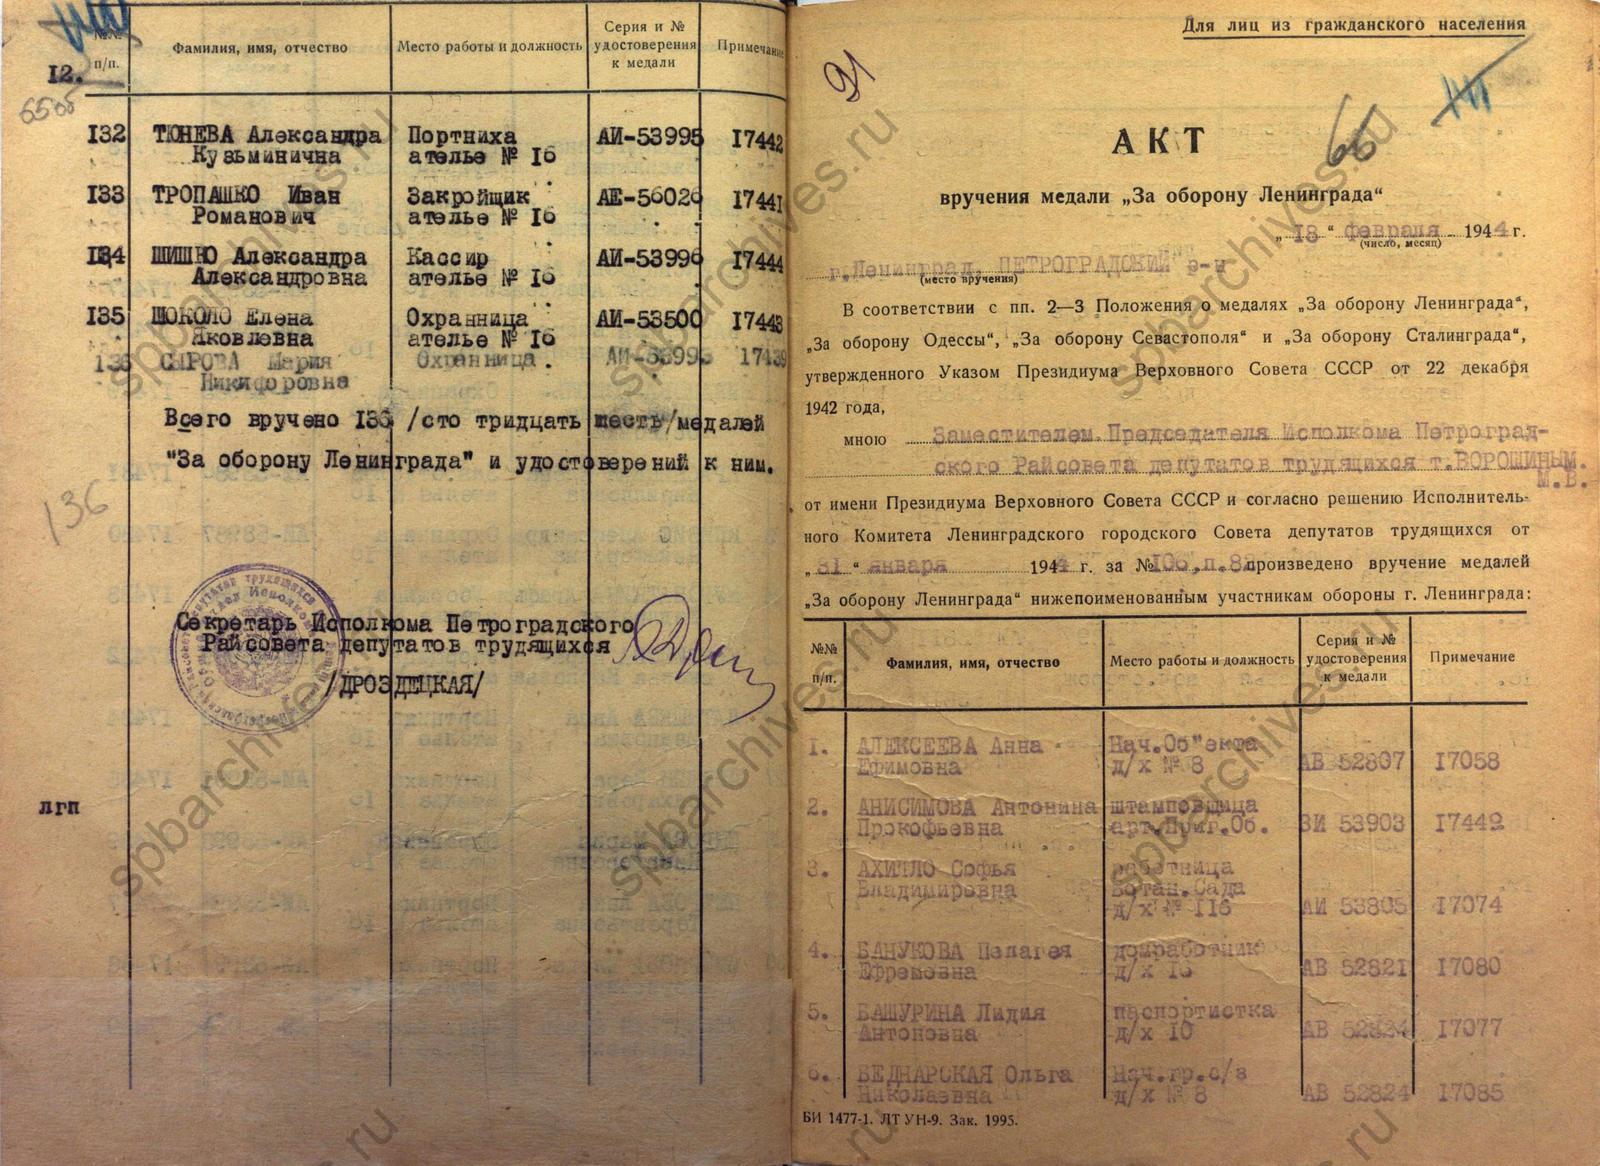 №№ п/п.
Фамилия, имя, отчество
Место работы и должность
Серия и № удостоверения к медали
Примечание
12.
65об
132 ТЮНЕВА Александра Портниха АИ-53995 17442
Кузьминична ателье № 16
133 ТРОПАШКО Иван Закройщик АЕ-56026 17441
Романович ателье № 16
134 ШИШКО Александра Кассир АИ-53996 17444
Александровна ателье № 16
135 ШОКОЛО Елена Охранница АИ-53500 17443
Яковлевна ателье № 16
136 СЫРОВА Мария Охранница АИ-53993 17439
Никифоровна
Всего вручено 136 /сто тридцать шесть/медалей
"За оборону Ленинграда" и удостоверений к ним.
136
Секретарь Исполкома Петроградского
Райсовета депутатов трудящихся
/ДРОЗДЕЦКАЯ/
лгп
Для лиц из гражданского населения
91
66
АКТ
вручения медали „За оборону Ленинграда“
„18“ февраля 1944 г.
(число, месяц)
г.Ленинград, ПЕТРОГРАДСКИЙ р-н
(место вручения)
В соответствии с пп. 2—3 Положения о медалях „За оборону Ленинграда“,
„За оборону Одессы“, „За оборону Севастополя“ и „За оборону Сталинграда“,
утвержденного Указом Президиума Верховного Совета СССР от 22 декабря
1942 года,
мною Заместителем Председателя Исполкома Петроград-
ского Райсовета депутатов трудящихся т.ВОРОШИНЫМ.
М.В.
от имени Президиума Верховного Совета СССР и согласно решению Исполнитель-
ного Комитета Ленинградского городского Совета депутатов трудящихся от
„31“ января 1944 г. за № 106,п.82 произведено вручение медалей
„За оборону Ленинграда“ нижепоименованным участникам обороны г. Ленинграда:
№№ п/п.
Фамилия, имя, отчество
Место работы и должность
Серия и № удостоверения к медали
Примечание
1. АЛЕКСЕЕВА Анна Нач.Об"екта
Ефимовна д/х № 8 АВ 52807 17058
2. АНИСИМОВА Антонина штамповщица
Прокофьевна арт.Приг.Об. ЗИ 53903 17442
3. АХИТЛО Софья работница
Владимировна Ботан.Сада
д/х № 116 АИ 53805 17074
4. БАНУКОВА Пелагея домработник
Ефремовна д/х 16 АВ 52821 17080
5. БАШУРИНА Лидия паспортистка
Антоновна д/х 10 АВ 52824 17077
6. БЕДНАРСКАЯ Ольга Нач.гр.с/з
Николаевна д/х № 8 АВ 52824 17085
БИ 1477-1. ЛТ УН-9. Зак. 1995.
spbarchives.ru